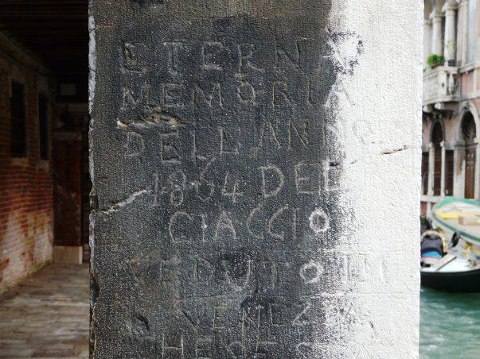 ETERNA
MEMORIA
DELL ANNO
1864 DEL
CIAGGIO
VEDUTO IN
VENEZIA